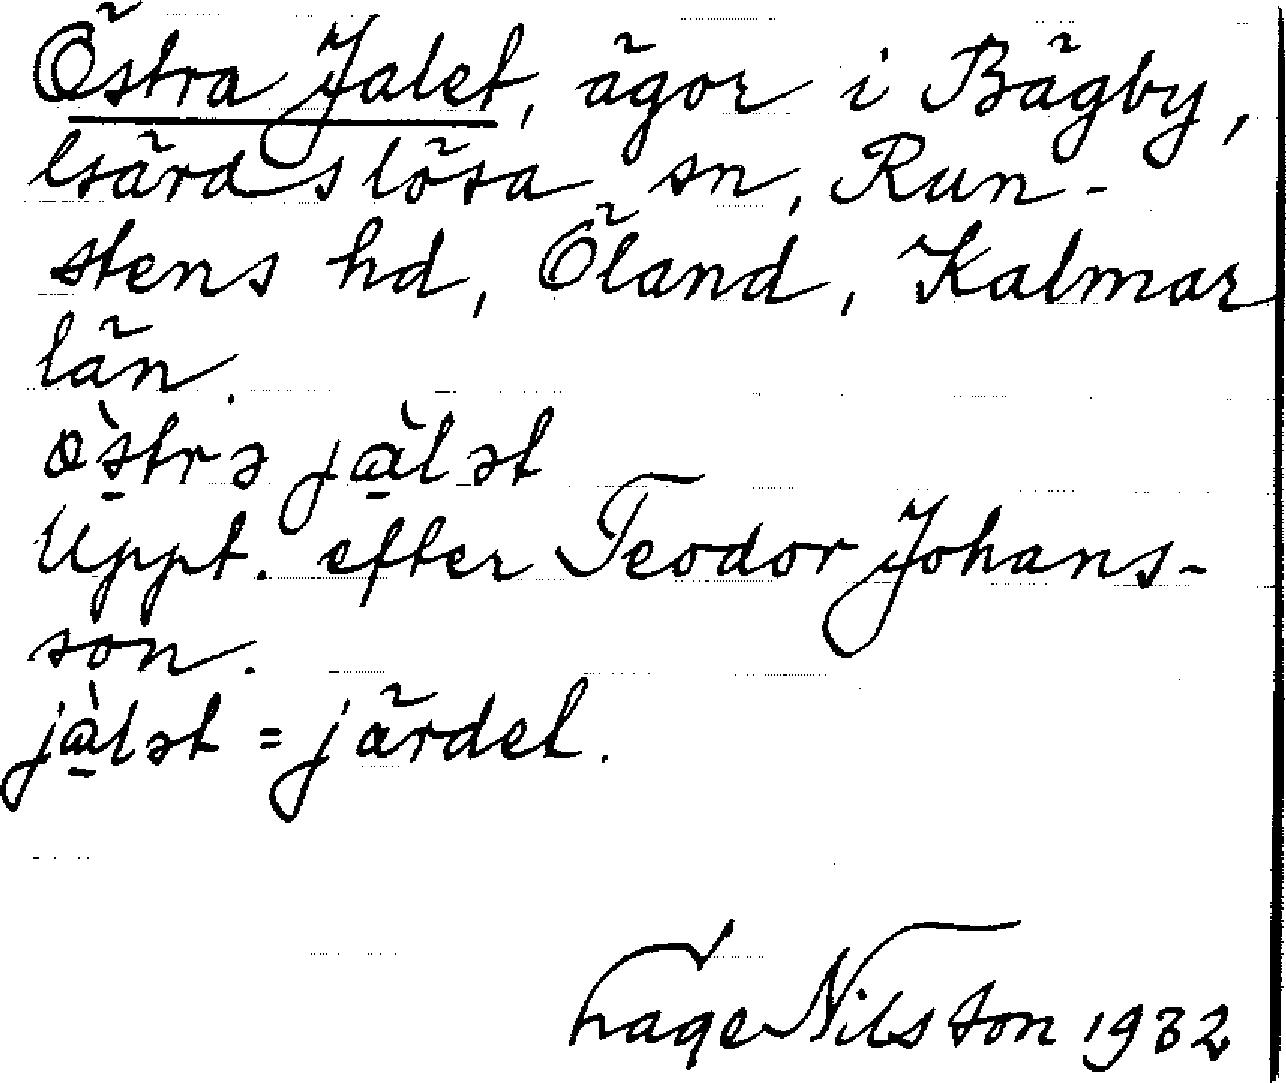 Östra Jalet, ägor i Bägby,
Gärdslösa sn, Run-
stens hd, Öland, Kalmar
län.
ö̀strə jàlət
Uppt. efter Teodor Johans-
son.
jàlət = järdet.
Hage Nilsson 1932